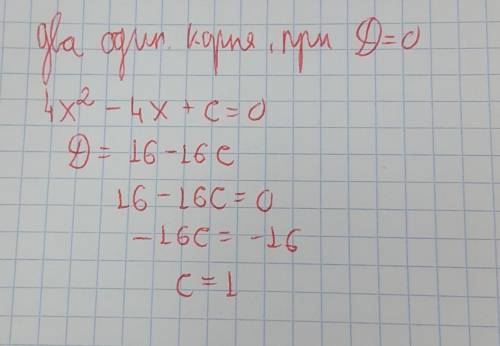 два один. корня, при D=0
4x² - 4x + c = 0
D = 16 - 16c
16 - 16c = 0
-16c = -16
c = 1